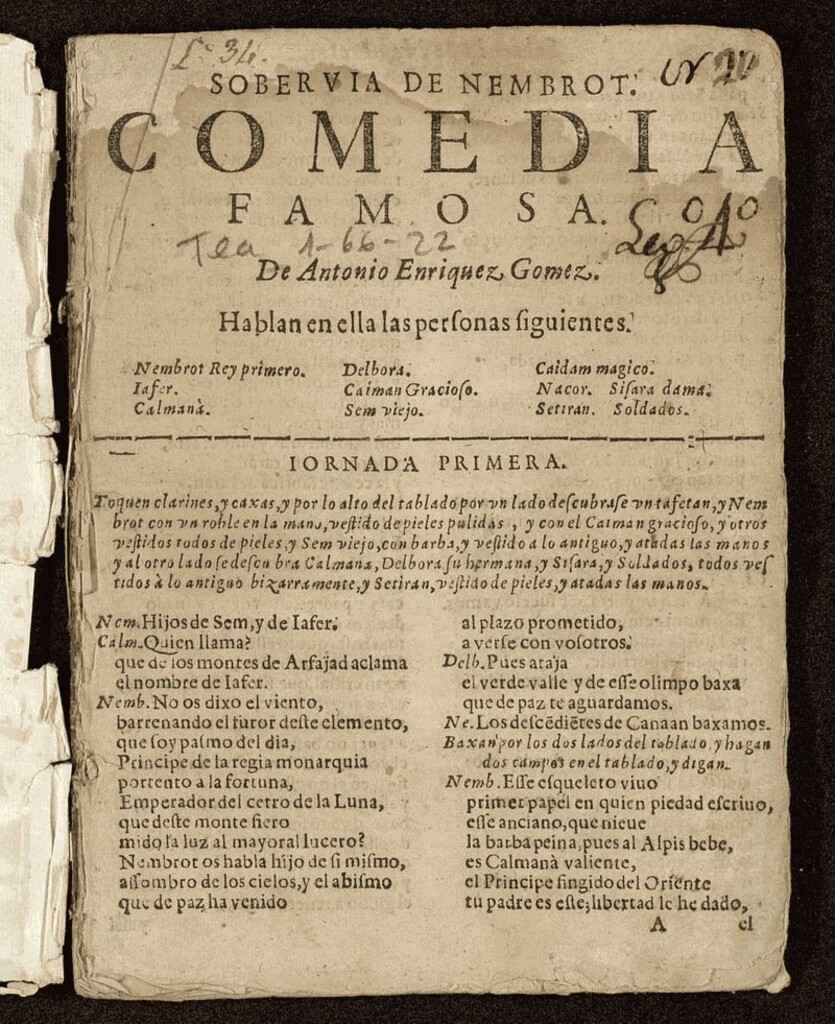 Lº 34.
N 20
SOBERVIA DE NEMBROT.
COMEDIA
FAMOSA.
Tea 1-66-22
Leg A
De Antonio Enriquez Gomez.
Hablan en ella las perſonas ſiguientes.
Nembrot Rey primero. Delbora. Caidam magico.
Iafer. Caiman Gracioſo. Nacor. Siſara dama.
Calmanà. Sem viejo. Setiran. Soldados.
IORNADA PRIMERA.
Toquen clarines, y caxas, y por lo alto del tablado por vn lado deſcubraſe vn tafetan, y Nem
brot con vn roble en la mano, veſtido de pieles pulidas , y con el Caiman gracioſo, y otros
veſtidos todos de pieles, y Sem viejo, con barba, y veſtido a lo antiguo, y atadas las manos
y al otro lado ſe deſcu bra Calmana, Delbora ſu hermana, y Siſara, y Soldados, todos veſ
tidos à lo antiguo bizarramente, y Setiran, veſtido de pieles, y atadas las manos.
Nem. Hijos de Sem, y de Iafer.
Calm. Quien llama?
que de los montes de Arfajad aclama
el nombre de Iafer.
Nemb. No os dixo el viento,
barrenando el furor deſte elemento,
que ſoy paſmo del dia,
Principe de la regia monarquia
portento a la fortuna,
Emperador del cetro de la Luna,
que deſte monte fiero
mido la luz al mayoral lucero?
Nembrot os habla hijo de ſi miſmo,
aſſombro de los cielos, y el abiſmo
que de paz ha venido
al plazo prometido,
a verſe con voſotros.
Delb. Pues ataja
el verde valle y de eſſe olimpo baxa
que de paz te aguardamos.
Ne. Los deſcēdiētes de Canaan baxamos.
Baxan por los dos lados del tablado, y hagan
dos campos en el tablado, y digan.
Nemb. Eſſe eſqueleto viuo
primer papel en quien piedad eſcriuo,
eſſe anciano, que nieue
la barba peina, pues al Alpis bebe,
es Calmanà valiente,
el Principe fingido del Oriente
tu padre es eſte; libertad le he dado,
A el